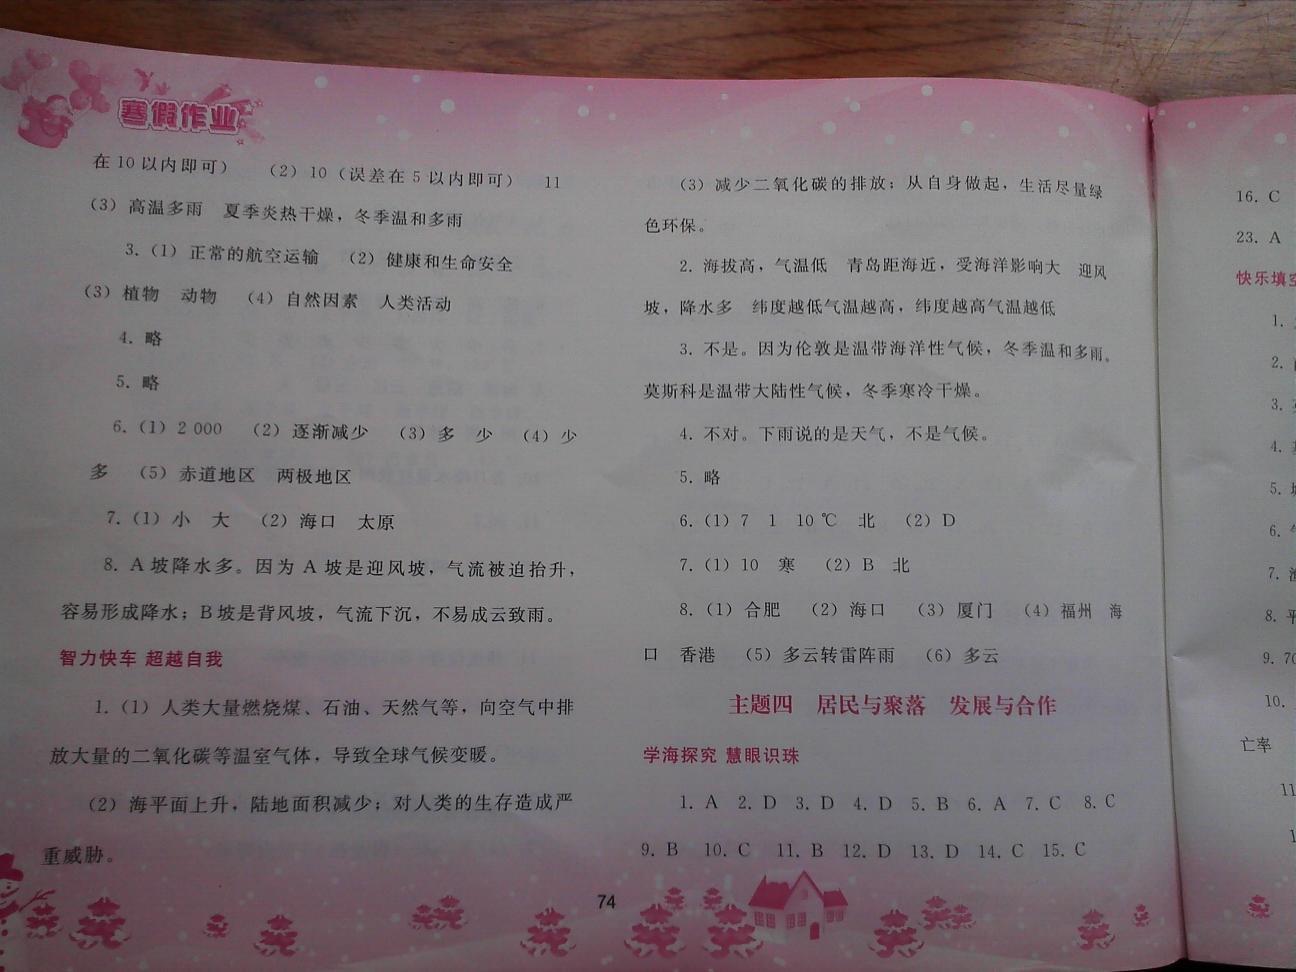 寒假作业
在10以内即可） （2）10（误差在5以内即可） 11
（3）高温多雨 夏季炎热干燥，冬季温和多雨
3.（1）正常的航空运输 （2）健康和生命安全
（3）植物 动物 （4）自然因素 人类活动
4. 略
5. 略
6.（1）2 000 （2）逐渐减少 （3）多 少 （4）少
多 （5）赤道地区 两极地区
7.（1）小 大 （2）海口 太原
8. A坡降水多。因为A坡是迎风坡，气流被迫抬升，
容易形成降水；B坡是背风坡，气流下沉，不易成云致雨。
智力快车 超越自我
1.（1）人类大量燃烧煤、石油、天然气等，向空气中排
放大量的二氧化碳等温室气体，导致全球气候变暖。
（2）海平面上升，陆地面积减少；对人类的生存造成严
重威胁。
（3）减少二氧化碳的排放；从自身做起，生活尽量绿
色环保。
2. 海拔高，气温低 青岛距海近，受海洋影响大 迎风
坡，降水多 纬度越低气温越高，纬度越高气温越低
3. 不是。因为伦敦是温带海洋性气候，冬季温和多雨。
莫斯科是温带大陆性气候，冬季寒冷干燥。
4. 不对。下雨说的是天气，不是气候。
5. 略
6.（1）7 1 10℃ 北 （2）D
7.（1）10 寒 （2）B 北
8.（1）合肥 （2）海口 （3）厦门 （4）福州 海
口 香港 （5）多云转雷阵雨 （6）多云
主题四 居民与聚落 发展与合作
学海探究 慧眼识珠
1. A 2. D 3. D 4. D 5. B 6. A 7. C 8. C
9. B 10. C 11. B 12. D 13. D 14. C 15. C
74
16. C
23. A
快乐填空
1.
2.
3.
4.
5.
6.
7.
8. 平
9. 70
10.
亡率
11
1